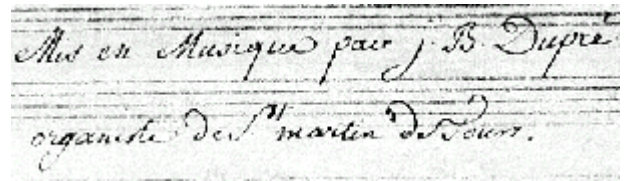 Mis en Musique par j. B. Dupré
organiste de St martin de Tours.